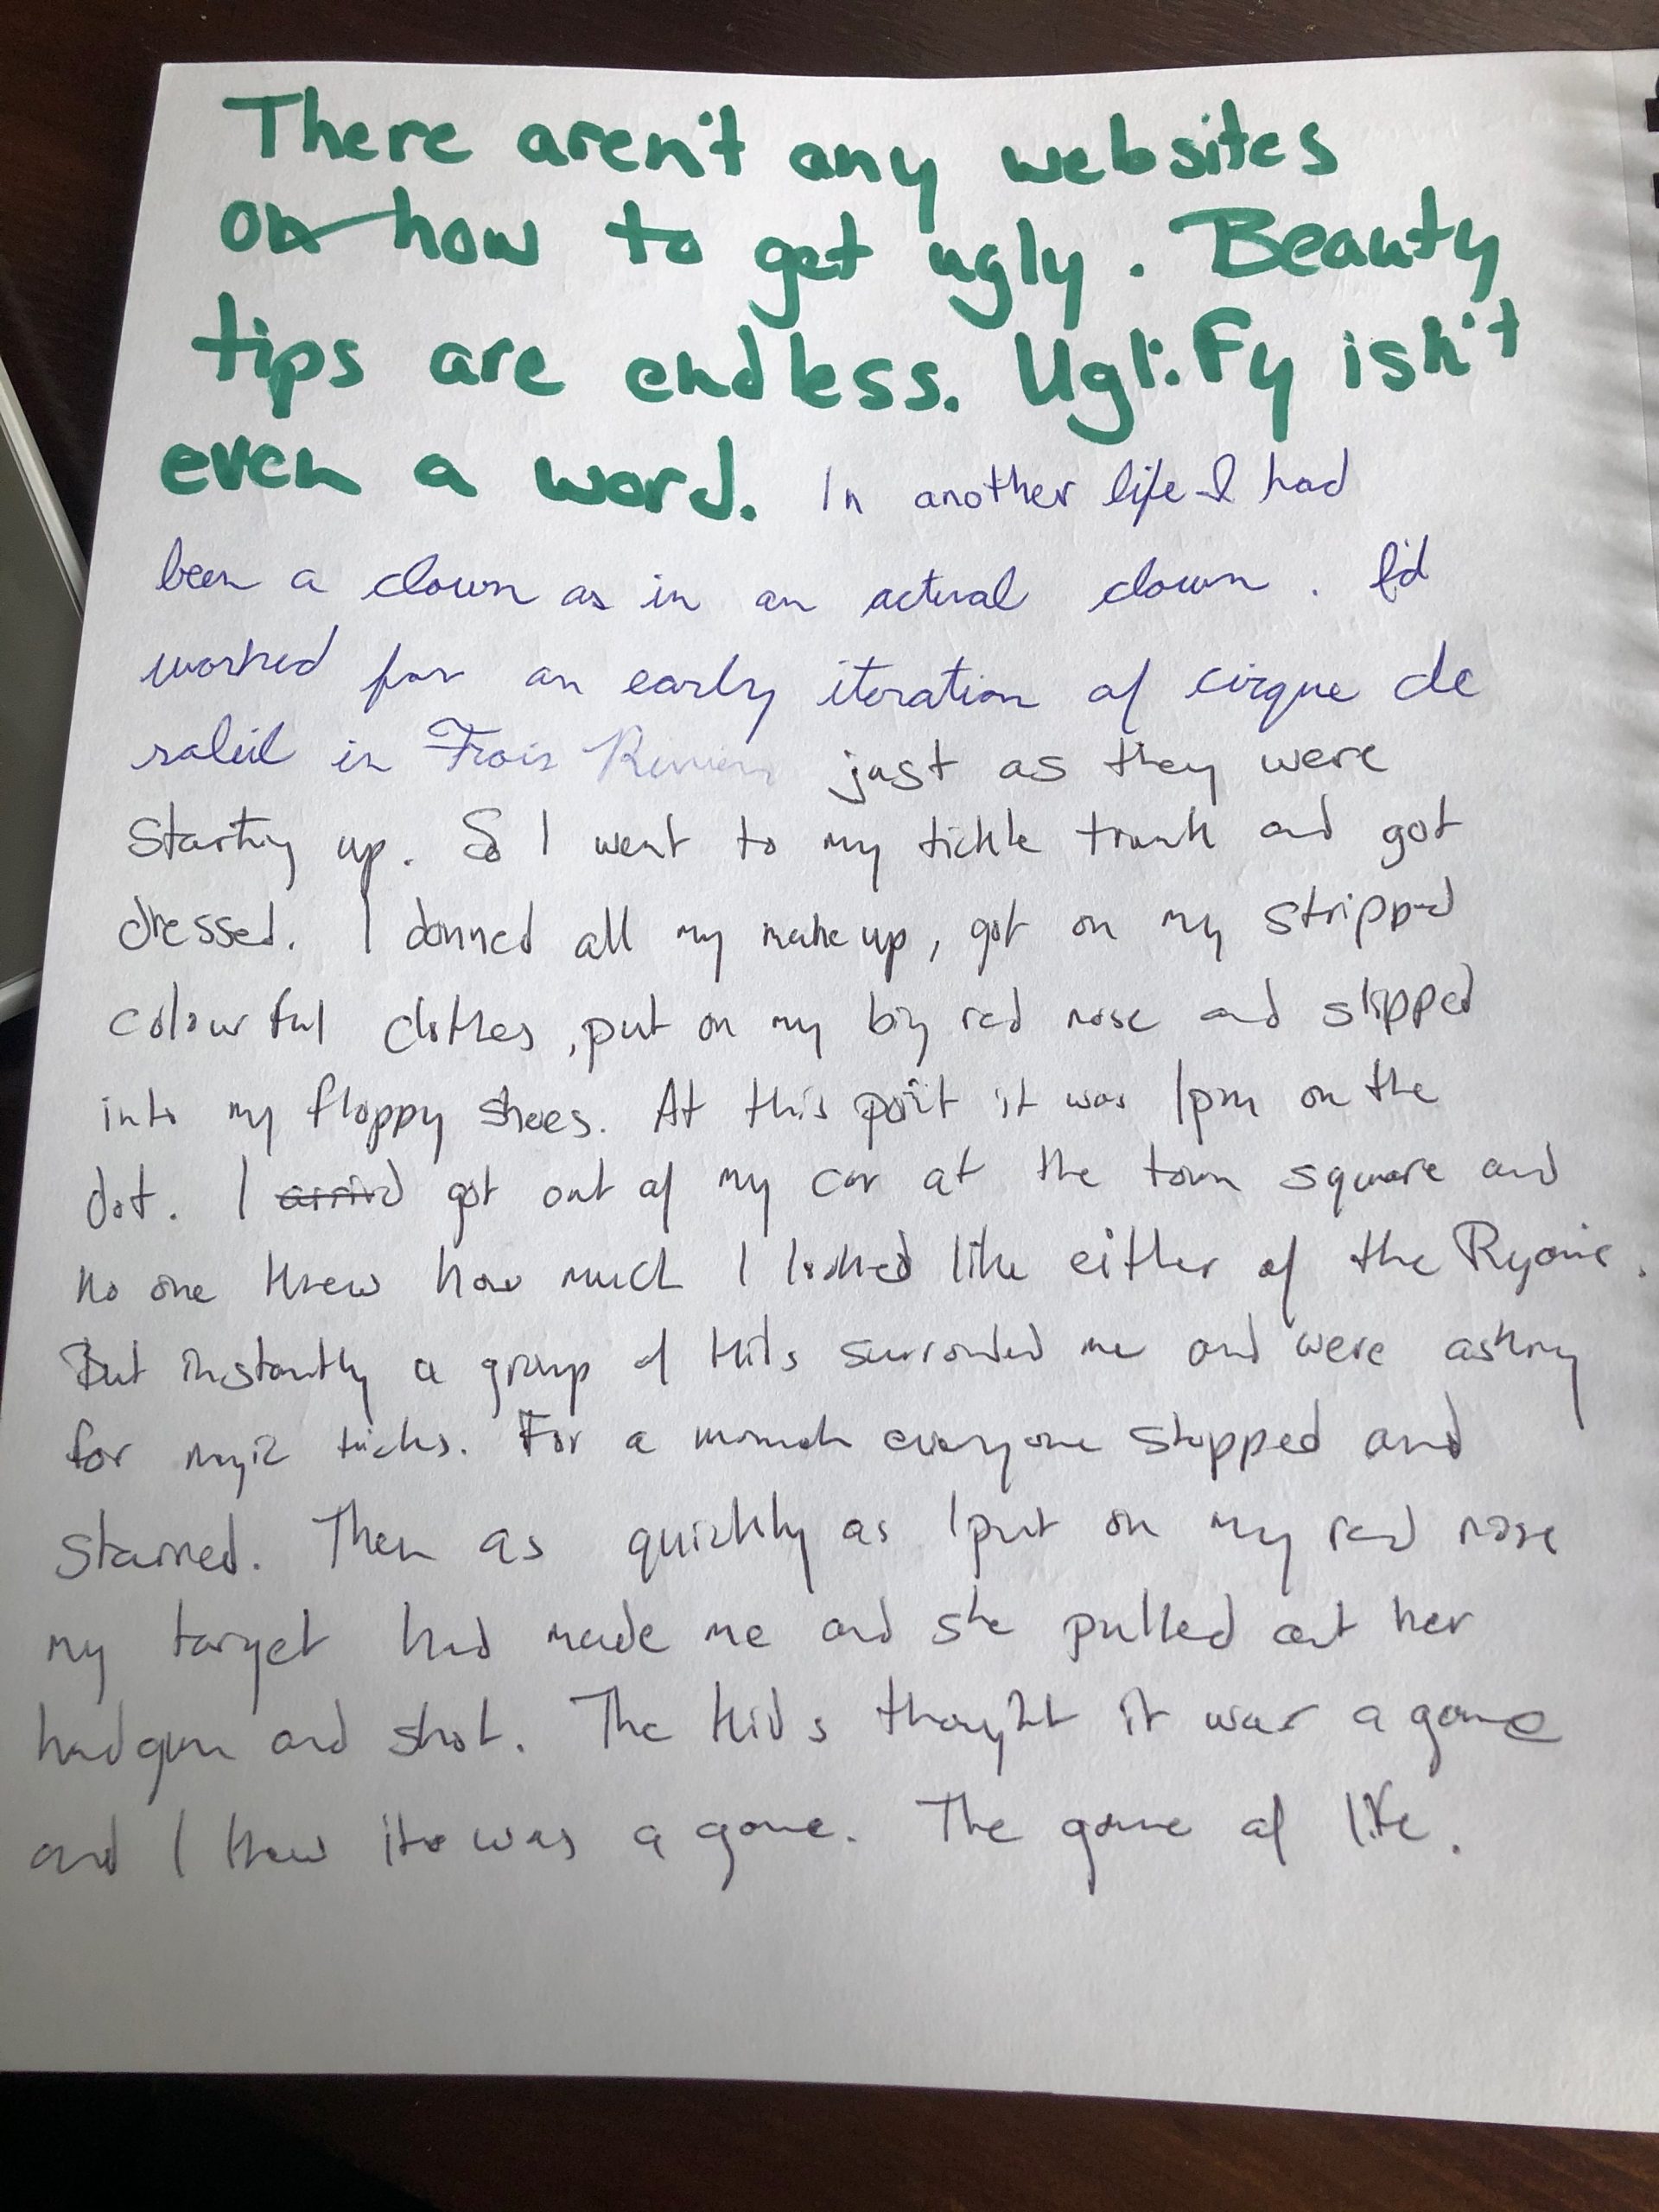 There aren't any websites
on how to get ugly. Beauty
tips are endless. Uglify isn't
even a word. In another life I had
been a clown as in an actual clown. I'd
worked for an early iteration of cirque de
soleil in Trois just as they were
starting up. So I went to my tickle trunk and got
dressed. I donned all my make up, got on my stripped
colourful clothes, put on my big red nose and slipped
into my floppy shoes. At this point it was 1pm on the
dot. I got out of my car at the town square and
no one knew how much I looked like either of the
But instantly a group of kids surrounded me and were asking
for magic tricks. For a moment everyone stopped and
starred. Then as quickly as I put on my red nose
my target had made me and she pulled out her
handgun and shot. The kids thought it was a game
and I knew it was a game. The game of life.